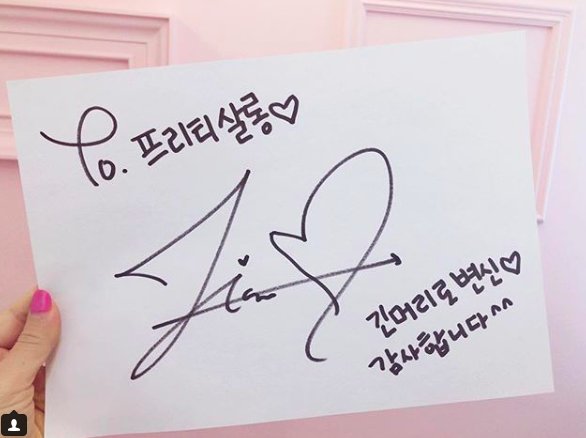 To. 프리티살롱♡
긴머리로 변신♡
감사합니다^^